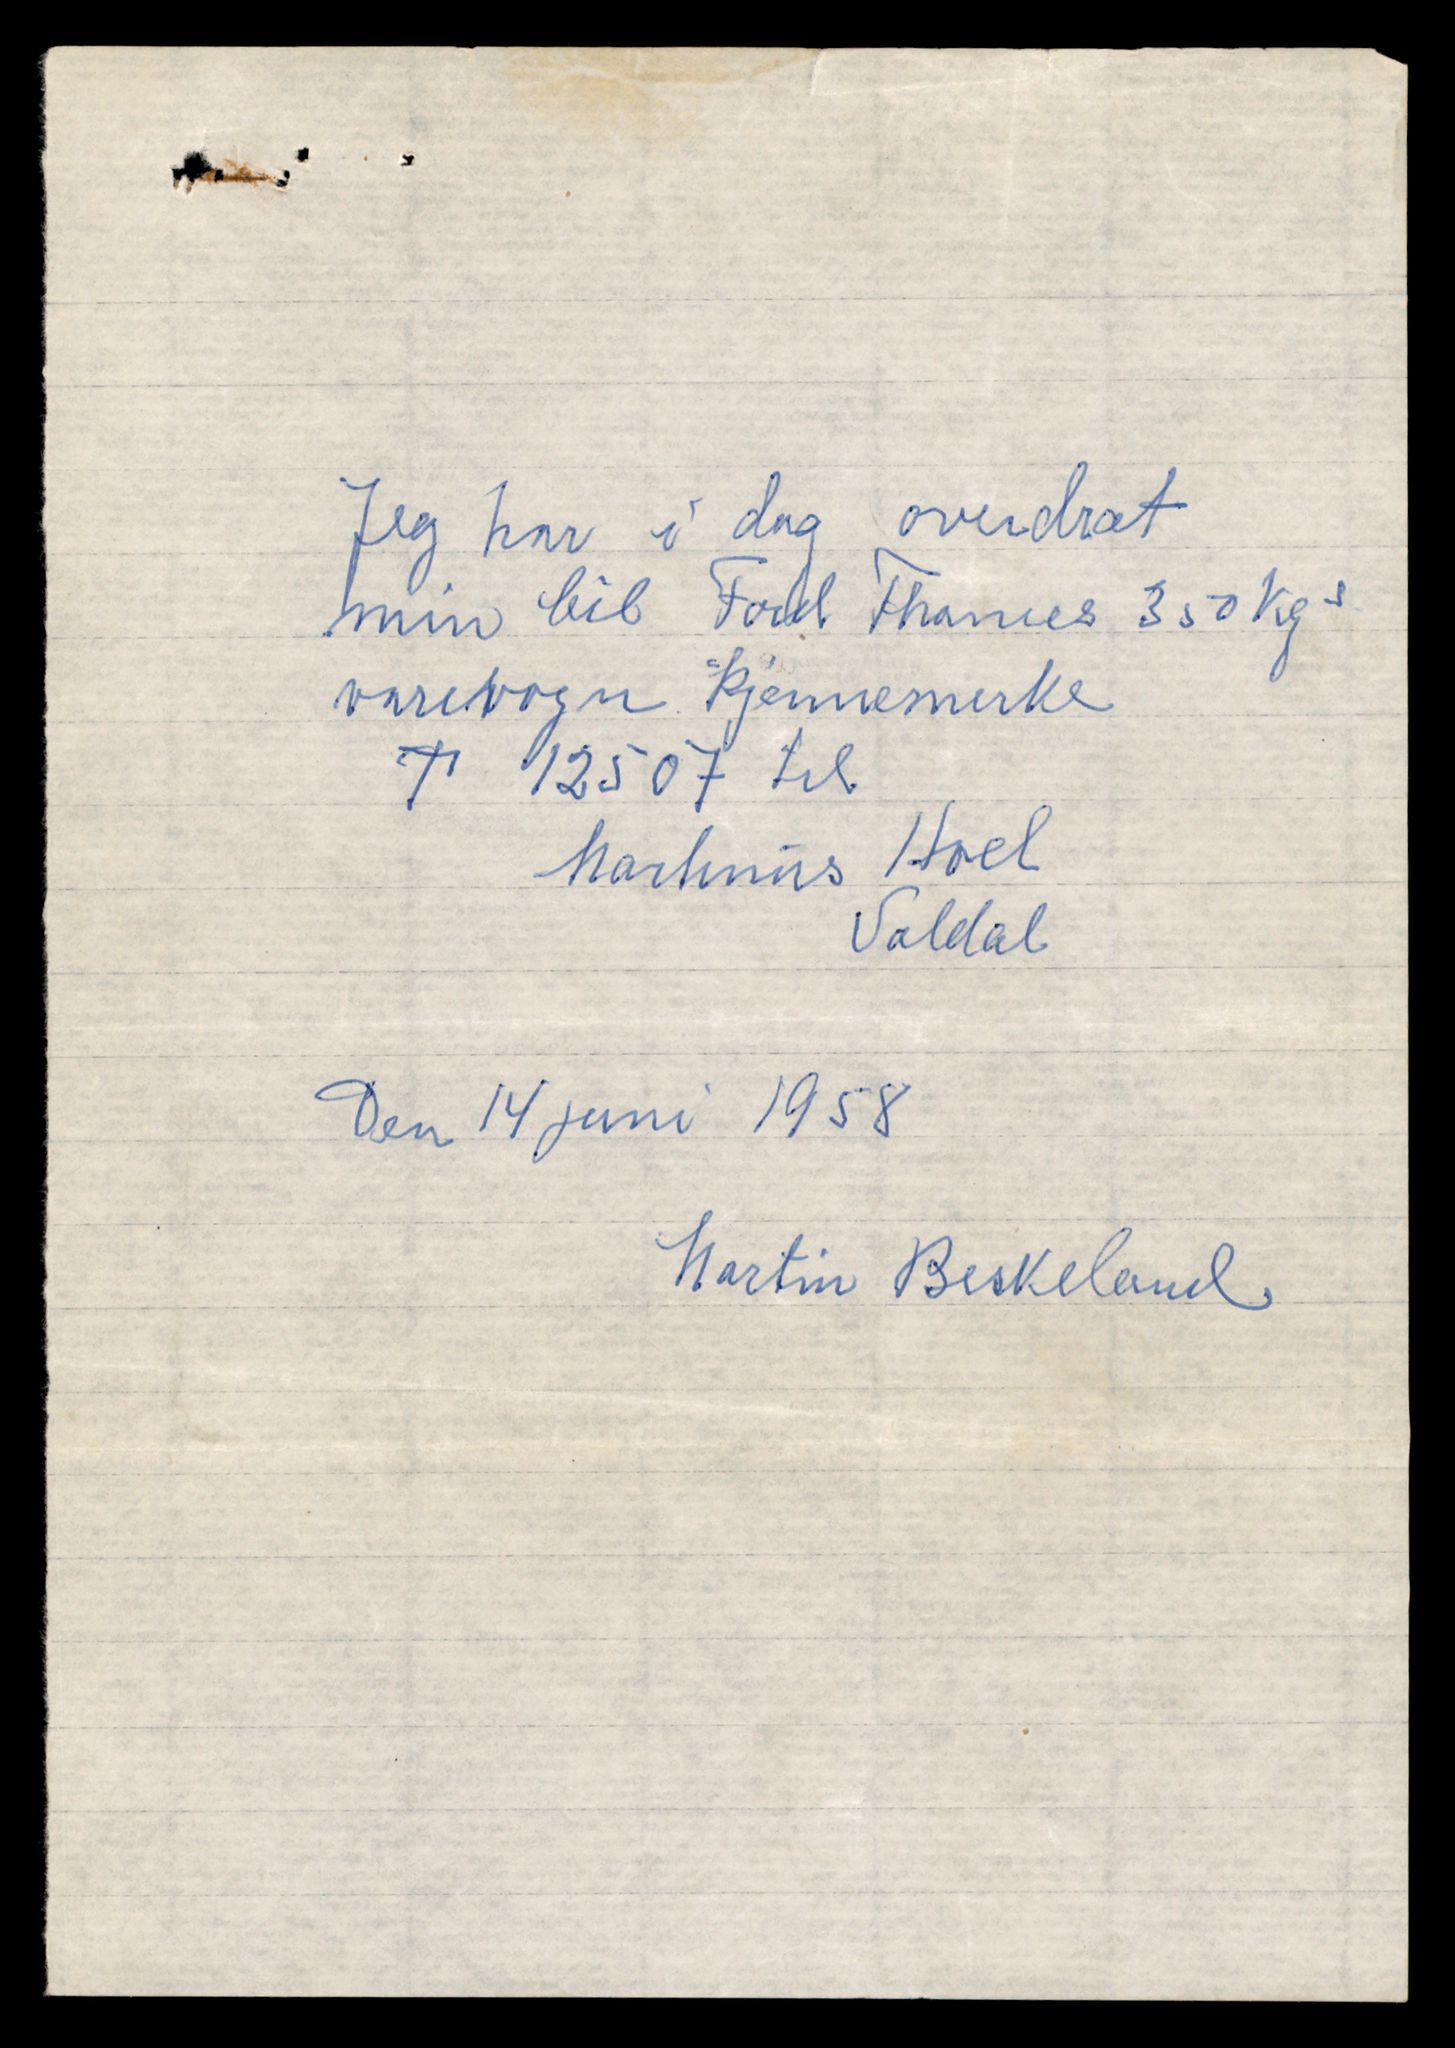 Jeg har i dag overdrat
min bil Ford Thames 350 kgs
varevogn kjennemerke
T 12507 til
Martinus Hoel
Valdal
Den 14 juni 1958
Martin Beskeland